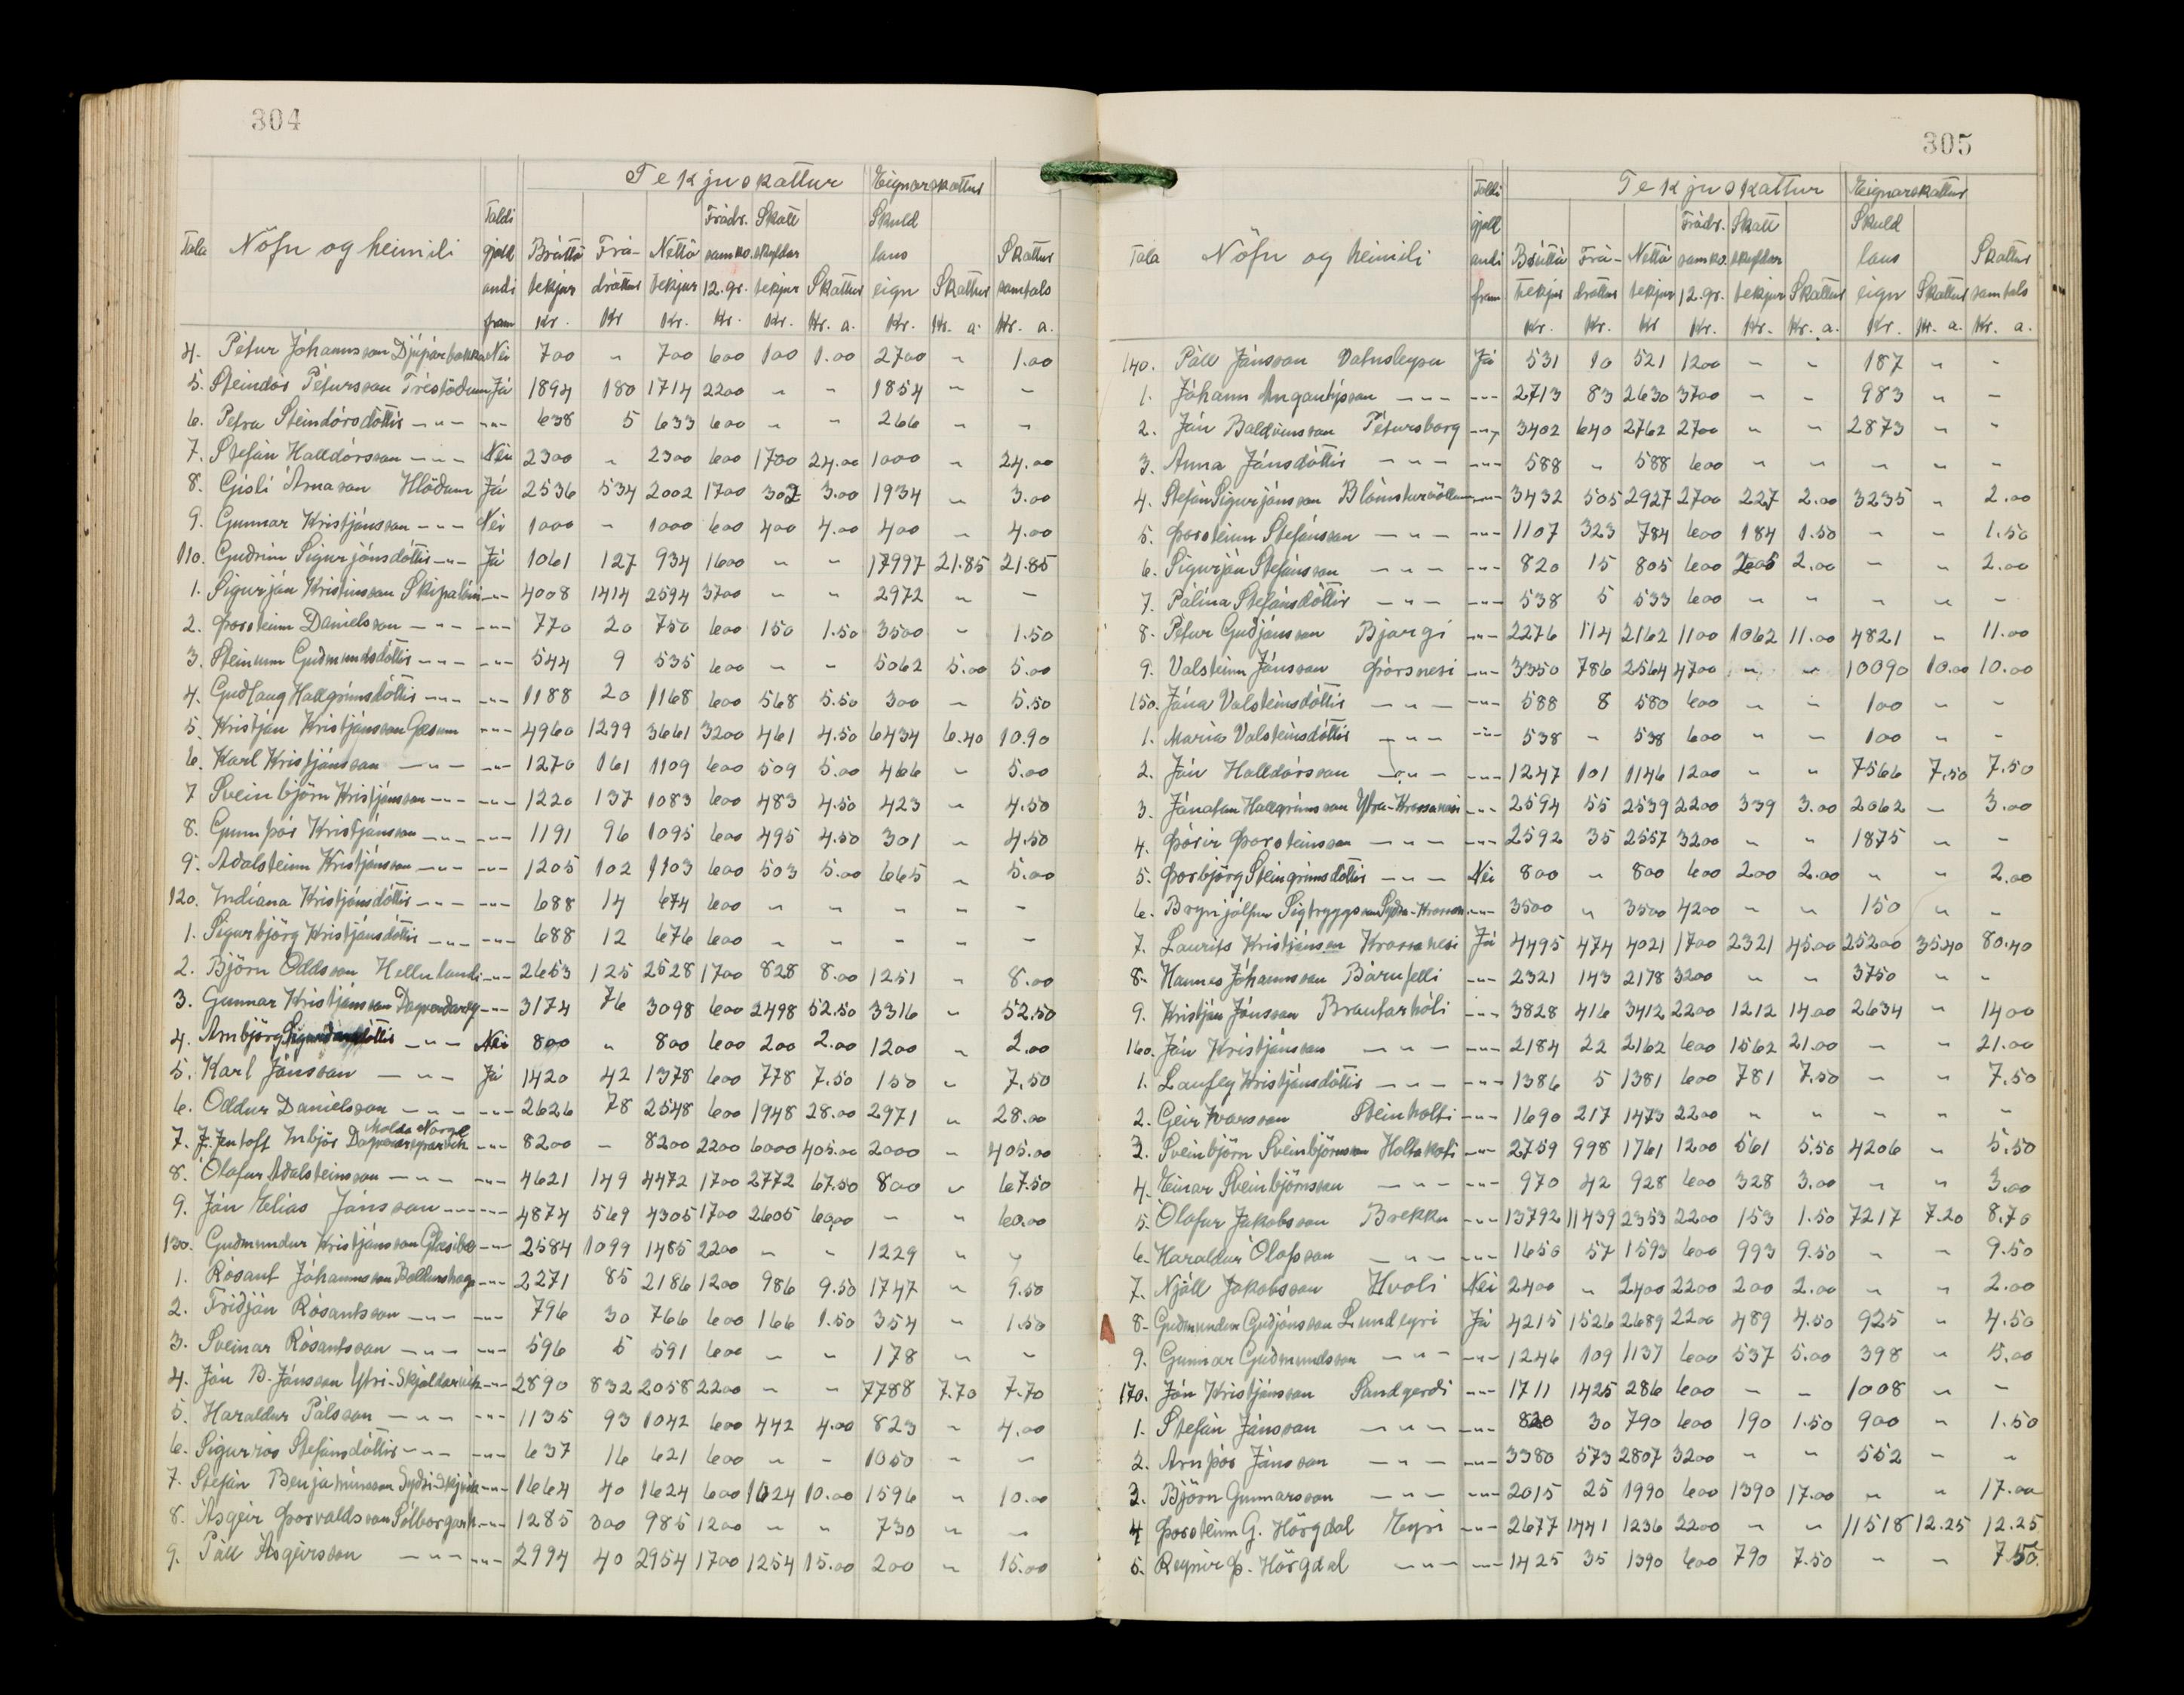 304
Tekjuskattur Eignarskattur
Tala Nöfn og heimili Taldi gjald andi fram Brúttó tekjur Kr. Frá- dráttur Kr Nettó tekjur Kr. Frádr. samkv. 12. gr. Kr. Skatt skyldar tekjur Kr. Skattur Kr. a. Skuld laus eign Kr. Skattur Kr. a. Skattur samtals Kr. a.
4. Pétur Jóhannsson Djúpárbakka Nei 700 " 700 600 100 1.00 2700 " 1.00
5. Steindór Pétursson Þrístöðum Já 1894 180 1714 2200 " " 1854 " "
6. Petra Steindórsdóttir -"- -"- 638 5 633 600 " " 266 " "
7. Stefán Halldórsson -"- Nei 2300 " 2300 600 1700 24.00 1000 " 24.00
8. Gísli Árnason Hlöðum Já 2536 534 2002 1700 302 3.00 1934 " 3.00
9. Gunnar Kristjánsson -"- Nei 1000 - 1000 600 400 4.00 400 " 4.00
110. Guðrún Sigurjónsdóttir -"- Já 1061 127 934 1600 " " 17997 21.85 21.85
1. Sigurjón Kristinsson Skipalóni -"- 4008 1414 2594 3700 " " 2972 " -
2. Þorsteinn Daníelsson -"- -"- 770 20 750 600 150 1.50 3500 " 1.50
3. Steinunn Guðmundsdóttir -"- -"- 544 9 535 600 " " 5062 5.00 5.00
4. Guðlaug Hallgrímsdóttir -"- -"- 1188 20 1168 600 568 5.50 300 " 5.50
5. Kristján Kristjánsson Gásum -"- 4960 1299 3661 3200 461 4.50 6434 6.40 10.90
6. Karl Kristjánsson -"- -"- 1270 161 1109 600 509 5.00 466 " 5.00
7 Sveinbjörn Kristjánsson -"- -"- 1220 137 1083 600 483 4.50 423 " 4.50
8. Gunnþór Kristjánsson -"- -"- 1191 96 1095 600 495 4.50 301 " 4.50
9. Aðalsteinn Kristjánsson -"- -"- 1205 102 1103 600 503 5.00 665 " 5.00
120. Indíana Kristjánsdóttir -"- -"- 688 14 674 600 " " " " "
1. Sigurbjörg Kristjánsdóttir -"- -"- 688 12 676 600 " " " " "
2. Björn Oddsson Hellulandi -"- 2653 125 2528 1700 828 8.00 1251 " 8.00
3. Gunnar Kristjánsson Dagverðareyr -"- 3174 76 3098 600 2498 52.50 3316 " 52.50
4. Arnbjörg -"- Nei 800 " 800 600 200 2.00 1200 " 2.00
5. Karl Jónsson -"- Já 1420 42 1378 600 778 7.50 150 " 7.50
6. Oddur Daníelsson -"- -"- 2626 78 2548 600 1948 28.00 2971 " 28.00
7. J. Jentoft Inbjör Molde Norge -"- 8200 - 8200 2200 6000 405.00 2000 " 405.00
8. Ólafur Aðalsteinsson -"- -"- 4621 149 4472 1700 2772 67.50 800 " 67.50
9. Jón Elías Jónsson -"- -"- 4874 569 4305 1700 2605 60.00 - " 60.00
130. Guðmundur Kristjánsson Glæsibæ -"- 2584 1099 1485 2200 " " 1229 " "
1. Rósant Jóhannsson -"- 2271 85 2186 1200 986 9.50 1747 " 9.50
2. Friðjón Rósantsson -"- -"- 796 30 766 600 166 1.50 354 " 1.50
3. Sveinar Rósantsson -"- -"- 596 5 591 600 " " 178 " "
4. Jón B. Jónsson Ytri-Skjaldarvík -"- 2890 832 2058 2200 " " 7788 7.70 7.70
5. Haraldur Pálsson -"- -"- 1135 93 1042 600 442 4.00 823 " 4.00
6. Sigurrós Stefánsdóttir -"- -"- 637 16 621 600 " " 1050 " "
7. Stefán Benjamínsson Syðri-Skjvík -"- 1664 40 1624 600 1024 10.00 1596 " 10.00
8. Ásgeir Þorvaldsson Sólborgarh. -"- 1285 300 985 1200 " " 730 " "
9. Páll Ásgeirsson -"- -"- 2994 40 2954 1700 1254 15.00 200 " 15.00
305
Tekjuskattur Eignarskattur
Tala Nöfn og heimili Taldi gjald andi fram Brúttó tekjur Kr. Frá- dráttur Kr. Nettó tekjur Kr Frádr. samkv. 12. gr. Kr. Skatt skyldar tekjur Kr. Skattur Kr. a. Skuld laus eign Kr. Skattur Kr. a. Skattur samtals Kr. a.
140. Páll Jónsson Vatnsleysu Já 531 10 521 1200 " " 187 " "
1. Jóhann Angantýsson -"- -"- 2713 83 2630 3700 " " 983 " "
2. Jón Baldvinsson Pétursborg -"- 3402 640 2762 2700 " " 2873 " "
3. Anna Jónsdóttir -"- -"- 588 " 588 600 " " " " "
4. Stefán Sigurjónsson Blómsturvöllum -"- 3432 505 2927 2700 227 2.00 3235 " 2.00
5. Þorsteinn Stefánsson -"- -"- 1107 323 784 600 184 1.50 - " 1.50
6. Sigurjón Stefánsson -"- -"- 820 15 805 600 205 2.00 - " 2.00
7. Pálína Stefánsdóttir -"- -"- 538 5 533 600 " " " " "
8. Pétur Guðjónsson Bjargi -"- 2276 114 2162 1100 1062 11.00 4821 " 11.00
9. Valsteinn Jónsson Þórsnesi -"- 3350 786 2564 4700 " " 10090 10.00 10.00
150. Jóna Valsteinsdóttir -"- -"- 588 8 580 600 " " 100 " "
1. María Valsteinsdóttir -"- -"- 538 " 538 600 " " 100 " "
2. Jón Halldórsson -"- -"- 1247 101 1146 1200 " " 7566 7.50 7.50
3. Jónatan Hallgrímsson Ytra-Krossanesi -"- 2594 55 2539 2200 339 3.00 2062 - 3.00
4. Þórir Þorsteinsson -"- -"- 2592 35 2557 3200 " " 1875 " "
5. Þorbjörg Steingrímsdóttir -"- Nei 800 " 800 600 200 2.00 " " 2.00
6. Brynjólfur Sigtryggsson Syðra-Krossan. -"- 3500 " 3500 4200 " " 150 " "
7. Laurits Kristjánsen Krossanesi Já 4495 474 4021 1700 2321 45.00 25200 35.40 80.40
8. Hannes Jóhannsson Bárufelli -"- 2321 143 2178 3200 " " 3750 " "
9. Kristján Jónsson Brautarhóli -"- 3828 416 3412 2200 1212 14.00 2634 " 14.00
160. Jón Kristjánsson -"- -"- 2184 22 2162 600 1562 21.00 - " 21.00
1. Laufey Kristjánsdóttir -"- -"- 1386 5 1381 600 781 7.50 - " 7.50
2. Geir Ívarsson Steinholti -"- 1690 217 1473 2200 " " " " "
3. Sveinbjörn Sveinbjörnsson Holtakoti -"- 2759 998 1761 1200 561 5.50 4206 " 5.50
4. Einar Sveinbjörnsson -"- -"- 970 42 928 600 328 3.00 " " 3.00
5. Ólafur Jakobsson Brekku -"- 13792 11439 2353 2200 153 1.50 7217 7.20 8.70
6. Haraldur Ólafsson -"- -"- 1650 57 1593 600 993 9.50 " " 9.50
7. Njáll Jakobsson Hvoli Nei 2400 " 2400 2200 200 2.00 " " 2.00
8. Guðmundur Guðjónsson Lundeyri Já 4215 1526 2689 2200 489 4.50 925 " 4.50
9. Gunnar Guðmundsson -"- -"- 1246 109 1137 600 537 5.00 398 " 5.00
170. Jón Kristjánsson Sandgerði -"- 1711 1425 286 600 - - 1008 " "
1. Stefán Jónsson -"- -"- 820 30 790 600 190 1.50 900 " 1.50
2. Arnþór Jónsson -"- -"- 3380 573 2807 3200 " " 552 " "
3. Björn Gunnarsson -"- -"- 2015 25 1990 600 1390 17.00 " " 17.00
4 Þorsteinn G. Hörgdal Eyri -"- 2677 1441 1236 2200 " " 11518 12.25 12.25
5. Reynir Þ. Hörgdal -"- -"- 1425 35 1390 600 790 7.50 " " 7.50